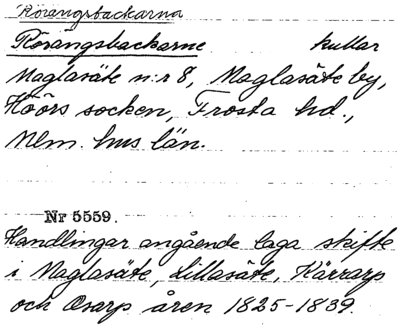 Rörangsbackarna
Rörångsbackarne kullar
Maglasäte n:r 8, Maglasäte by,
Höörs socken, Frosta hd.,
Mlm. hus län.
Nr 5559.
Handlingar angående laga skifte
i Maglasäte, Lillasäte, Kärrarp
och Osarp åren 1825-1839.